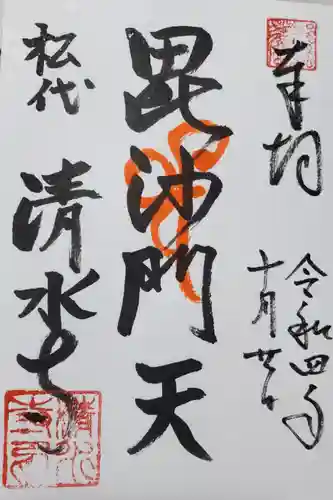 奉拝
令和四年
十月廿日
毘沙門天
松代
清水寺